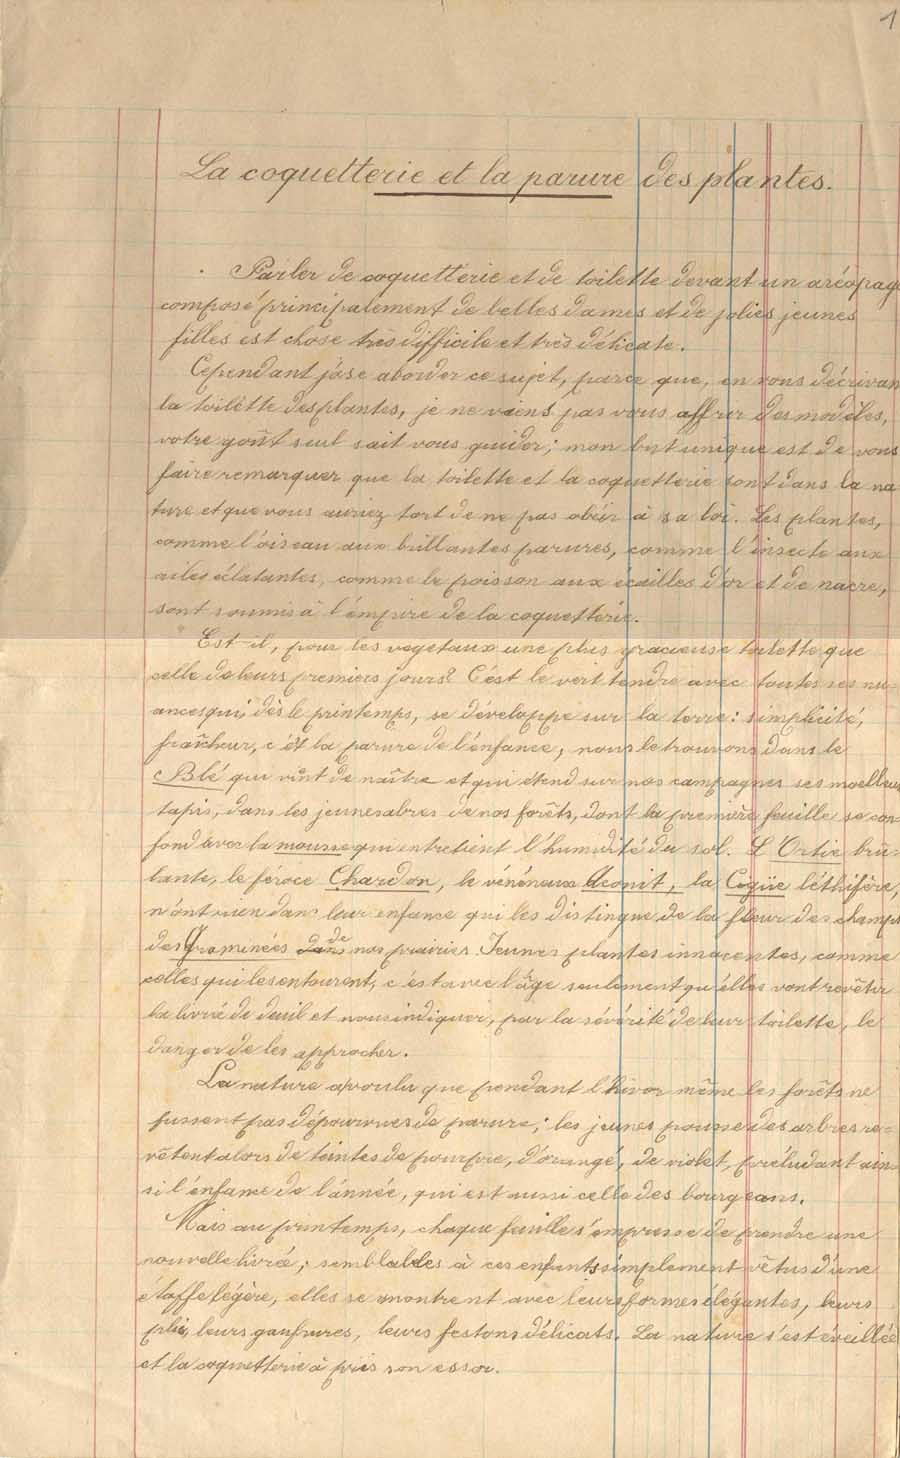 1
La coquetterie et la parure des plantes.
Parler de coquetterie et de toilette devant un aréopage
composé principalement de belles dames et de jolies jeunes
filles est chose très difficile et très délicate.
Cependant j'ose aborder ce sujet, parce que, en vous décrivan
la toilette des plantes, je ne viens pas vous offrir des modèles,
votre goût seul sait vous guider; mon but unique est de vous
faire remarquer que la toilette et la coquetterie sont dans la na
ture et que vous auriez tort de ne pas obéir à sa loi. Les plantes,
comme l'oiseau aux brillantes parures, comme l'insecte aux
ailes éclatantes, comme le poisson aux écailles d'or et de nacre,
sont soumis à l'empire de la coquetterie.
Est-il, pour les vegetaux une plus gracieuse toilette que
celle de leurs premiers jours? C'est le vert tendre avec toutes ses nu-
ances qui, dès le printemps, se développe sur la terre: simplicité,
fraîcheur, c'ét la parure de l'enfance, nous le trouvons dans le
Blé qui vint de naître et qui étend sur nos campagnes ses moelleux
tapis, dans les jeunes abres de nos forêts, dont la première feuille se con
fond avec la mousse qui entretient l'humidité du sol. L'Ortie brû-
lante, le féroce Chardon, le vénéneux Aconit, la Cigüe léthifère,
n'ont rien dans leur enfance qui les distingue de la fleur des champs
des Graminées dans de nos prairies. Jeunes plantes innocentes, comme
celles qui les entourent, c'est avec l'âge seulement qu'elles vont revêtir
la livrée de deuil et nous indiquer, par la sévérité de leur toilette, le
danger de les approcher.
La nature a voulu que pendant l'hiver même les forêts ne
fussent pas dépourvues de parure; les jeunes pousse des arbres re-
vêtent alors de teintes de pourpre, d'orangé, de violet, préludant ain-
si l'enfance de l'année, qui est aussi celle des bourgeons.
Mais au printemps, chaque feuille s'empresse de prendre une
nouvelle livrée; semblables à ces enfants simplement vêtus d'une
étoffe légère, elles se montrent avec leurs formes élégantes, leurs
plis, leurs gaufrures, leurs festons délicats. La nature s'est éveillée
et la coquetterie à pris son essor.